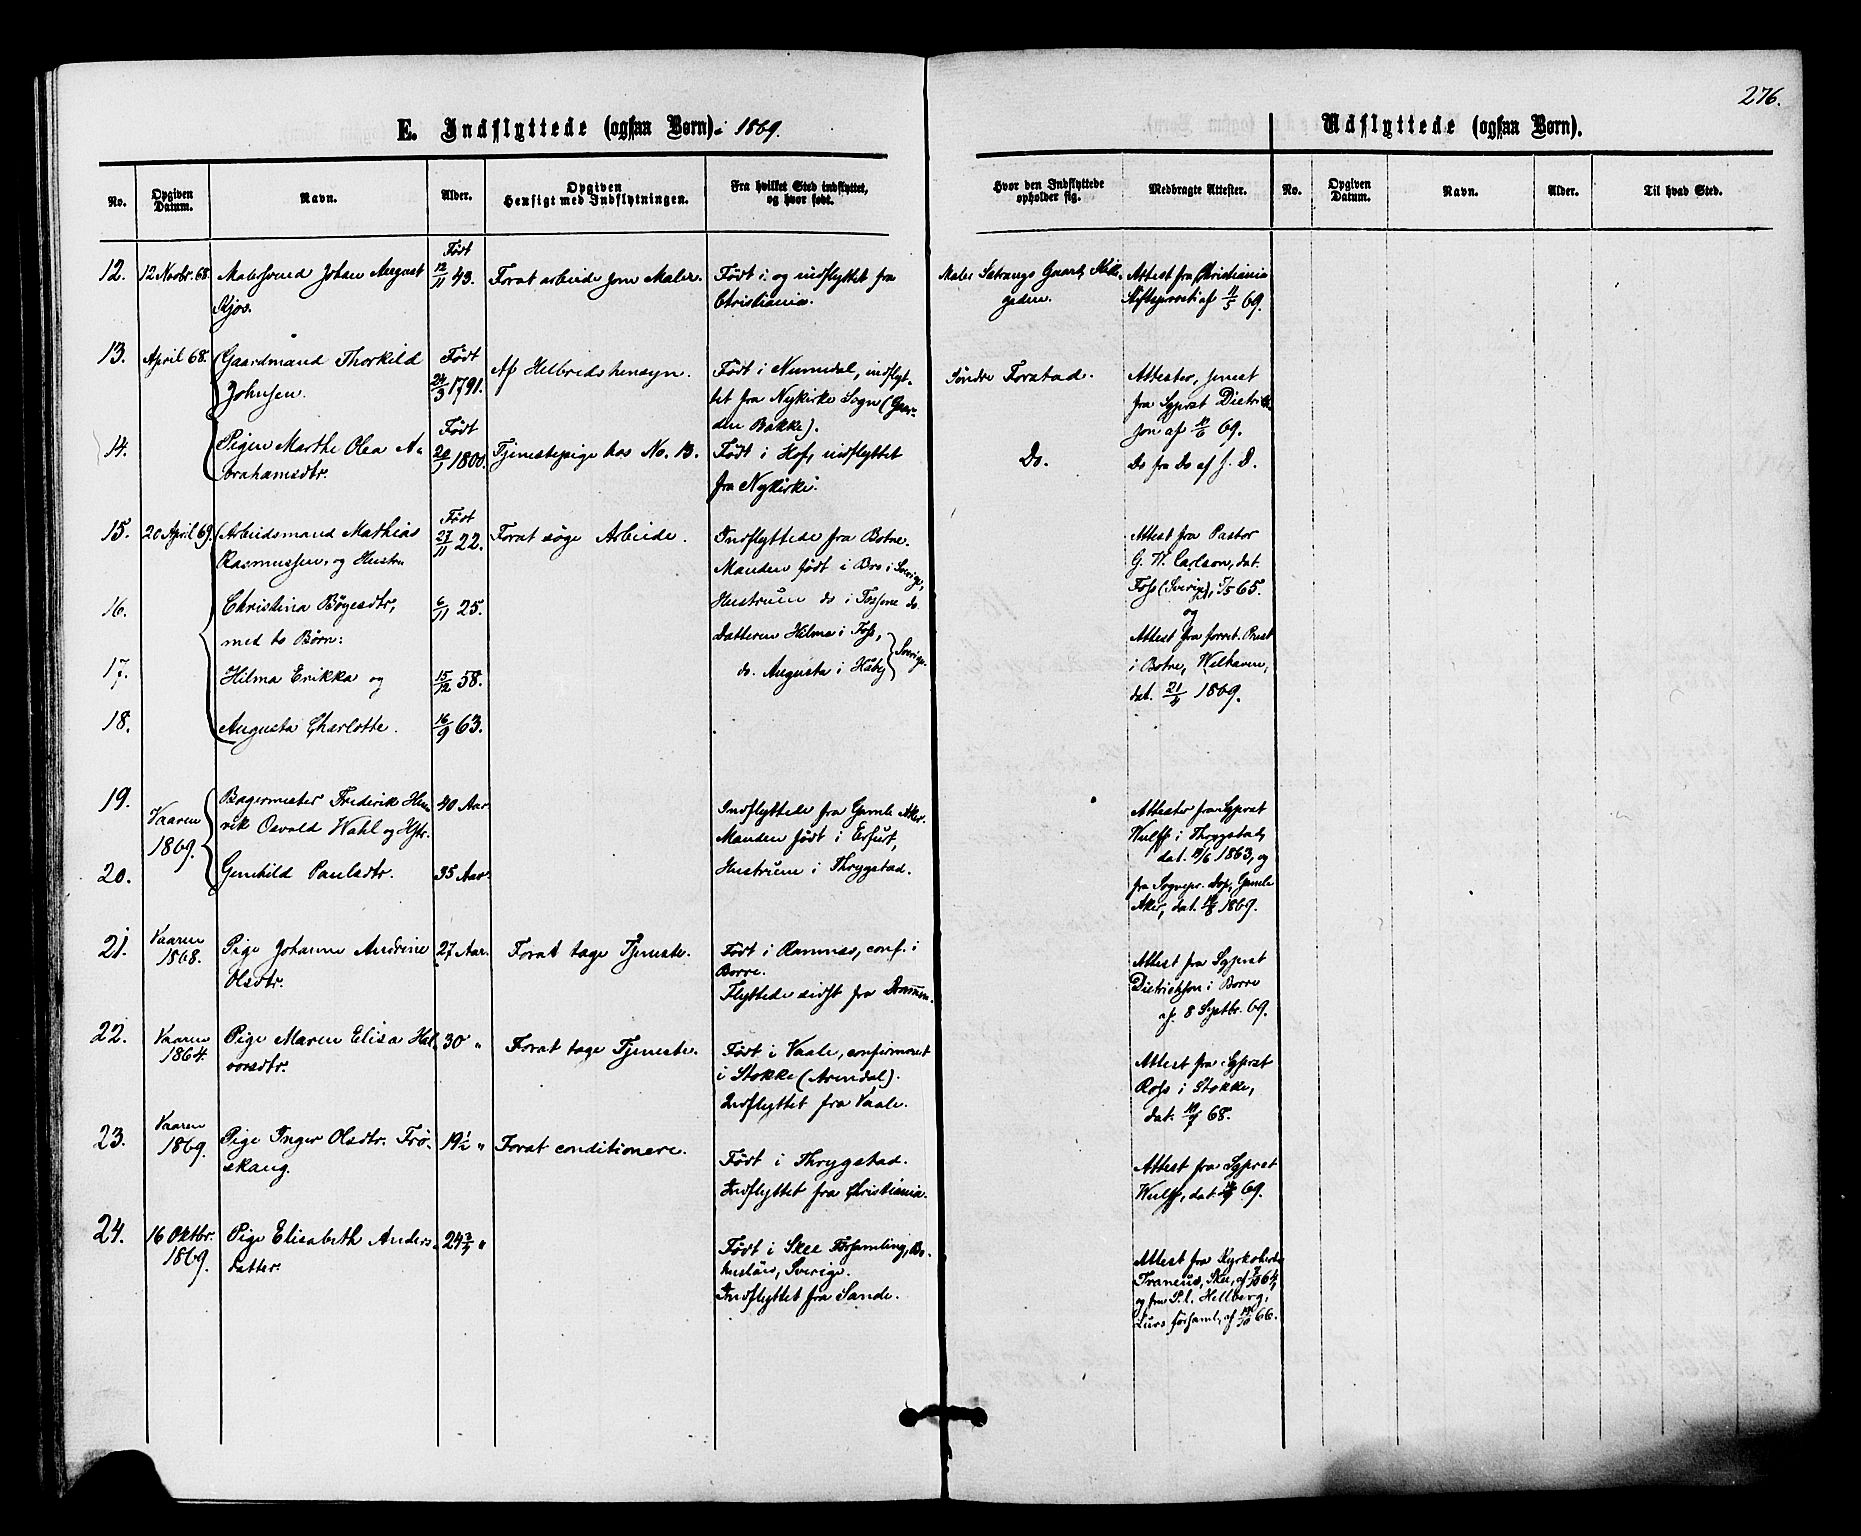 276.
E. Indflyttede (ogsaa Børn) i 1869.
No.
Opgiven Datum.
Navn.
Alder.
Opgiven Hensigt med Indflytningen.
Fra hvilket Sted indflyttet, og hvor født.
Hvor den Indflyttede opholder sig.
Medbragte Attester.
Udflyttede (ogsaa Børn).
No.
Opgiven Datum.
Navn.
Alder.
Til hvad Sted.
12.
12 Novbr. 68.
Malersvend Johan August
Kjos.
Født
12/11 43.
Forat arbeide som Maler.
Født i og indflyttet fra
Christiania.
Maler Gaard,
gaden.
Attest fra Christiania
Stiftsprovsti af 11/5 69.
13.
April 68.
Gaardmand Thorkild
Johnsen.
Født
24/3 1791.
Af Helbredshensyn.
Født i Numedal, indflyt-
tet fra Nykirke Sogn (Gaar-
den Bakke).
Søndre Forstad.
Attester, senest
fra Sgprst Dietrich-
son af 69.
14.
Pigen Marthe Olea A-
brahamsdtr.
Født
20/1 1800.
Tjenestepige hos No. 13.
Født i Hof, indflyttet
fra Nykirke.
Do.
Do fra Do af s. D.
15.
20 April 69.
Arbeidsmand Mathias
Rasmussen, og Hustru
Født
27/11 22.
Forat søge Arbeide.
Indflyttede fra Botne.
Manden født i Bro i Sverige,
Attest fra Pastor
G. W. Carlson, dat.
Foss (Sverige), 65.
og
16.
Christina Børjesdtr,
med to Børn:
6/11 25.
Hustruen do i Tossene do.
Datteren Hilma i Foss,
do. Augusta i Håby
Sverige.
Attest fra forret. Prest
i Botne, Welhaven,
dat. 21/4 1869.
17.
Hilma Erikka og
15/12 58.
18.
Augusta Charlotte.
16/9 63.
19.
Vaaren
1869.
Bagermester Frederik Hen-
rik Osvald Wahl og Hstr.
40 Aar
Indflyttede fra Gamle Aker.
Manden født i Erfurt,
Hustruen i Thrygstad.
Attester fra Sgprst
Wulff i Thrygstad,
dat. 1863, og
fra Sognepr. Dop, Gamle
Aker, dat. 1869.
20.
Gunhild Paulsdtr.
35 Aar
21.
Vaaren
1868.
Pige Johanne Andrine
Olsdtr.
27 Aar.
Forat tage Tjeneste.
Født i Ramnæs, conf. i
Borre.
Flyttede sidst fra Drammen.
Attest fra Sgprst
Dietrichson i Borre
af 8 Septbr. 69.
22.
Vaaren
1864.
Pige Maren Elisa Hal-
vorsdtr.
30 "
Forat tage Tjeneste.
Født i Vaale, confirmeret
i Stokke (Arendal).
Indflyttet fra Vaale.
Attest fra Sgprst
Ross i Stokke,
dat. 68.
23.
Vaaren
1869.
Pige Inger Olsdtr. Frø-
skaug.
19½ "
Forat conditionere.
Født i Thrygstad.
Indflyttet fra Christiania.
Attest fra Sgprst
Wulff, dat. 69.
24.
16 Oktbr.
1869.
Pige Elisabeth Anders-
datter.
24¾ "
Født i Skee Församling, Bo-
huslän, Sverige.
Indflyttet fra Sande.
Attest fra Kyrkoherde
Traneus, Skee, af 64,
og fra P. l. Hellberg,
Lurs församl, af 66.